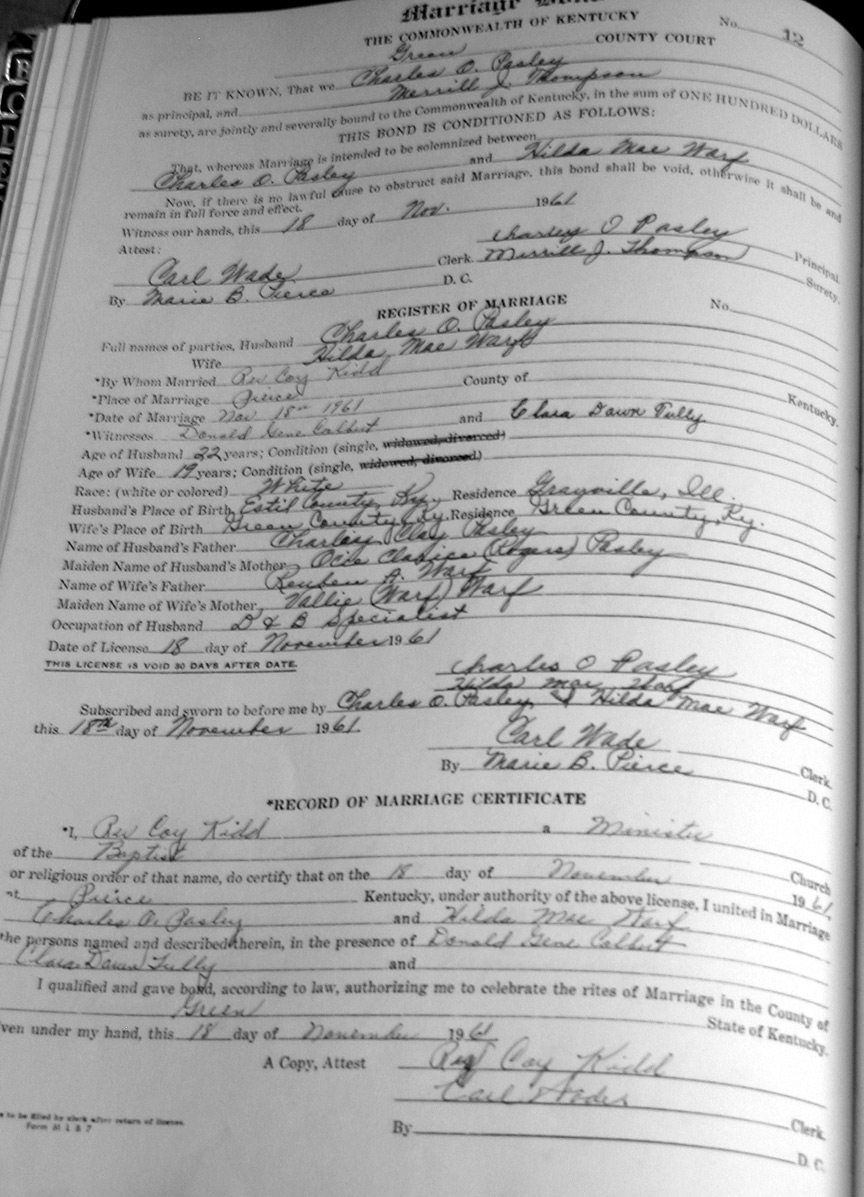 Marriage Bond
No. 12
THE COMMONWEALTH OF KENTUCKY
Green COUNTY COURT
BE IT KNOWN, That we Charles O. Pasley
as principal, and Merrill J. Thompson
as surety, are jointly and severally bound to the Commonwealth of Kentucky, in the sum of ONE HUNDRED DOLLARS
THIS BOND IS CONDITIONED AS FOLLOWS:
That, whereas Marriage is intended to be solemnized between
Charles O. Pasley and Hilda Mae Warf
Now, if there is no lawful cause to obstruct said Marriage, this bond shall be void, otherwise it shall be and
remain in full force and effect.
Witness our hands, this 18 day of Nov. 1961
Attest: Charles O Pasley Principal
Carl Wade Clerk. Merrill J. Thompson Surety.
By Marie B. Pierce D. C.
REGISTER OF MARRIAGE No.
Full names of parties, Husband Charles O. Pasley
Wife Hilda Mae Warf
*By Whom Married Rev Coy Kidd
*Place of Marriage Pierce County of Kentucky.
*Date of Marriage Nov 18th 1961
*Witnesses Donald Gene Calbert and Clara Dawn Tully
Age of Husband 22 years; Condition (single, widowed, divorced)
Age of Wife 19 years; Condition (single, widowed, divorced)
Race: (white or colored) White
Husband's Place of Birth Estil County, Ky. Residence Grayville, Ill.
Wife's Place of Birth Green County, Ky Residence Green County, Ky.
Name of Husband's Father Charles Clay Pasley
Maiden Name of Husband's Mother Ocie (Rogers) Pasley
Name of Wife's Father Reuben A. Warf
Maiden Name of Wife's Mother Vallie (Warf) Warf
Occupation of Husband D & B Specialist
Date of License 18 day of November 1961
THIS LICENSE IS VOID 30 DAYS AFTER DATE.
Charles O Pasley
Hilda Mae Warf
Subscribed and sworn to before me by Charles O. Pasley & Hilda Mae Warf
this 18th day of November 1961.
Carl Wade Clerk.
By Marie B. Pierce D. C.
*RECORD OF MARRIAGE CERTIFICATE
*I, Rev Coy Kidd a Minister
of the Baptist Church
or religious order of that name, do certify that on the 18 day of November 1961,
at Pierce Kentucky, under authority of the above license, I united in Marriage
Charles O. Pasley and Hilda Mae Warf
the persons named and described therein, in the presence of Donald Gene Calbert
Clara Dawn Tully and
I qualified and gave bond, according to law, authorizing me to celebrate the rites of Marriage in the County of
Green State of Kentucky.
ven under my hand, this 18 day of November 1961
Rev Coy Kidd
A Copy, Attest Carl Wade Clerk.
By D. C.
to be filled by clerk after return of license.
Form M L B 7